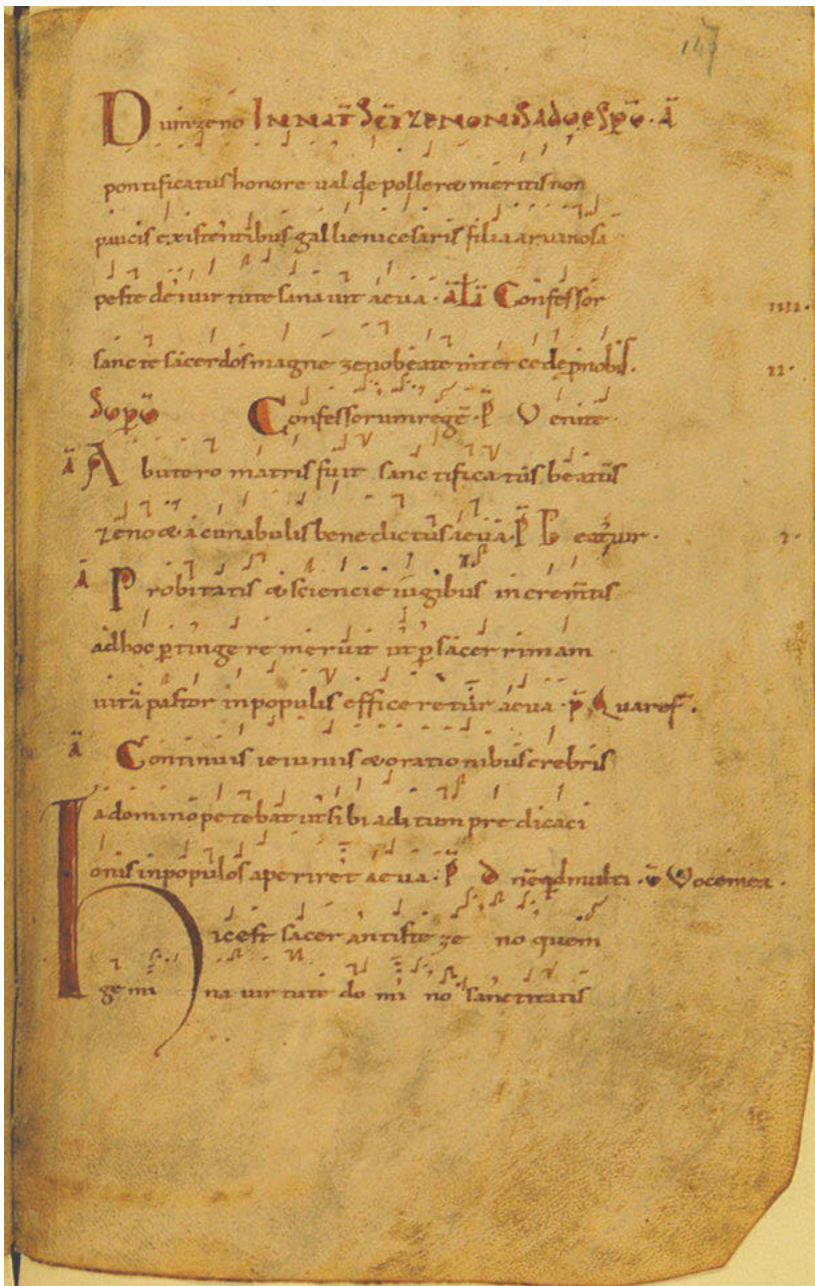 147
Dum zeno IN NAT SCI ZENONIS AD VESPM. A
pontificatus honore valde polleret meritis non
paucis existentibus gallieni cesaris filia a ruanosa
peste dei virtute sanavit aeva. ALI Confessor
iiii.
sancte sacerdos magne zeno beate intercede p nobis.
ii.
Confessorum rege. P Venite.
A Ab utero matris fuit sanctificatus beatus
zeno & a cunabulis benedictus aeva. P Beat vir.
A Probitatis & sciencie iugibus incremtis
ad hoc ptingere meruit ut p sacerrimam
vita pastor in populis efficeretur aeva. P Quare f.
A Continuis ieiuniis & orationibus crebris
a domino petebat ut sibi aditum predicaci
onis in populos aperiret aeva. P D ne qd multi. V Voce mea.
Hic est sacer antiste zeno quem
gemina virtute domino sanctitatis